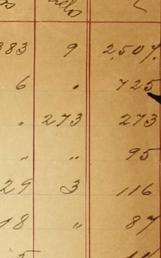 383 9 2,507
6 " 725
" 273 273
" " 95
29 3 116
18 " 87